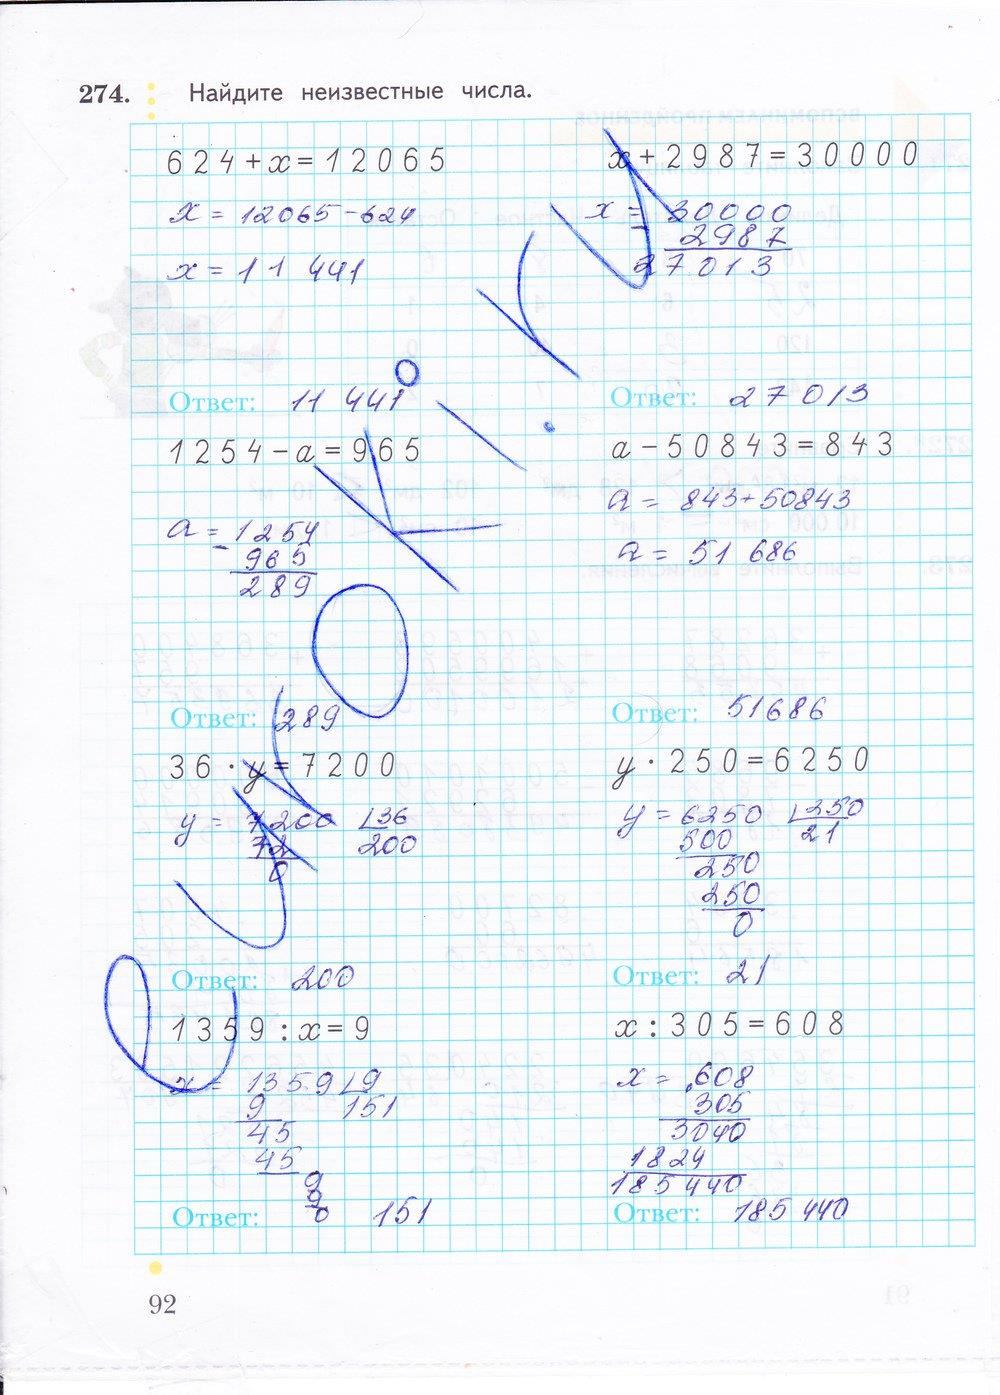 274. Найдите неизвестные числа.
624+x=12065
x+2987=30000
x = 12065-624
x = 11 441
x = 30000
- 2987
27013
Ответ: 11 441
Ответ: 27013
1254-a=965
a-50843=843
a = 1254
- 965
289
a = 843+50843
a = 51 686
Ответ: 289
Ответ: 51686
36·y=7200
y·250=6250
y = 7200 36
72 200
0
y = 6250 250
500 21
250
250
0
Ответ: 200
Ответ: 21
1359:x=9
x:305=608
x = 1359 9
9 151
45
45
9
9
0
x = 608
305
3040
1824
185440
Ответ: 151
Ответ: 185 440
92